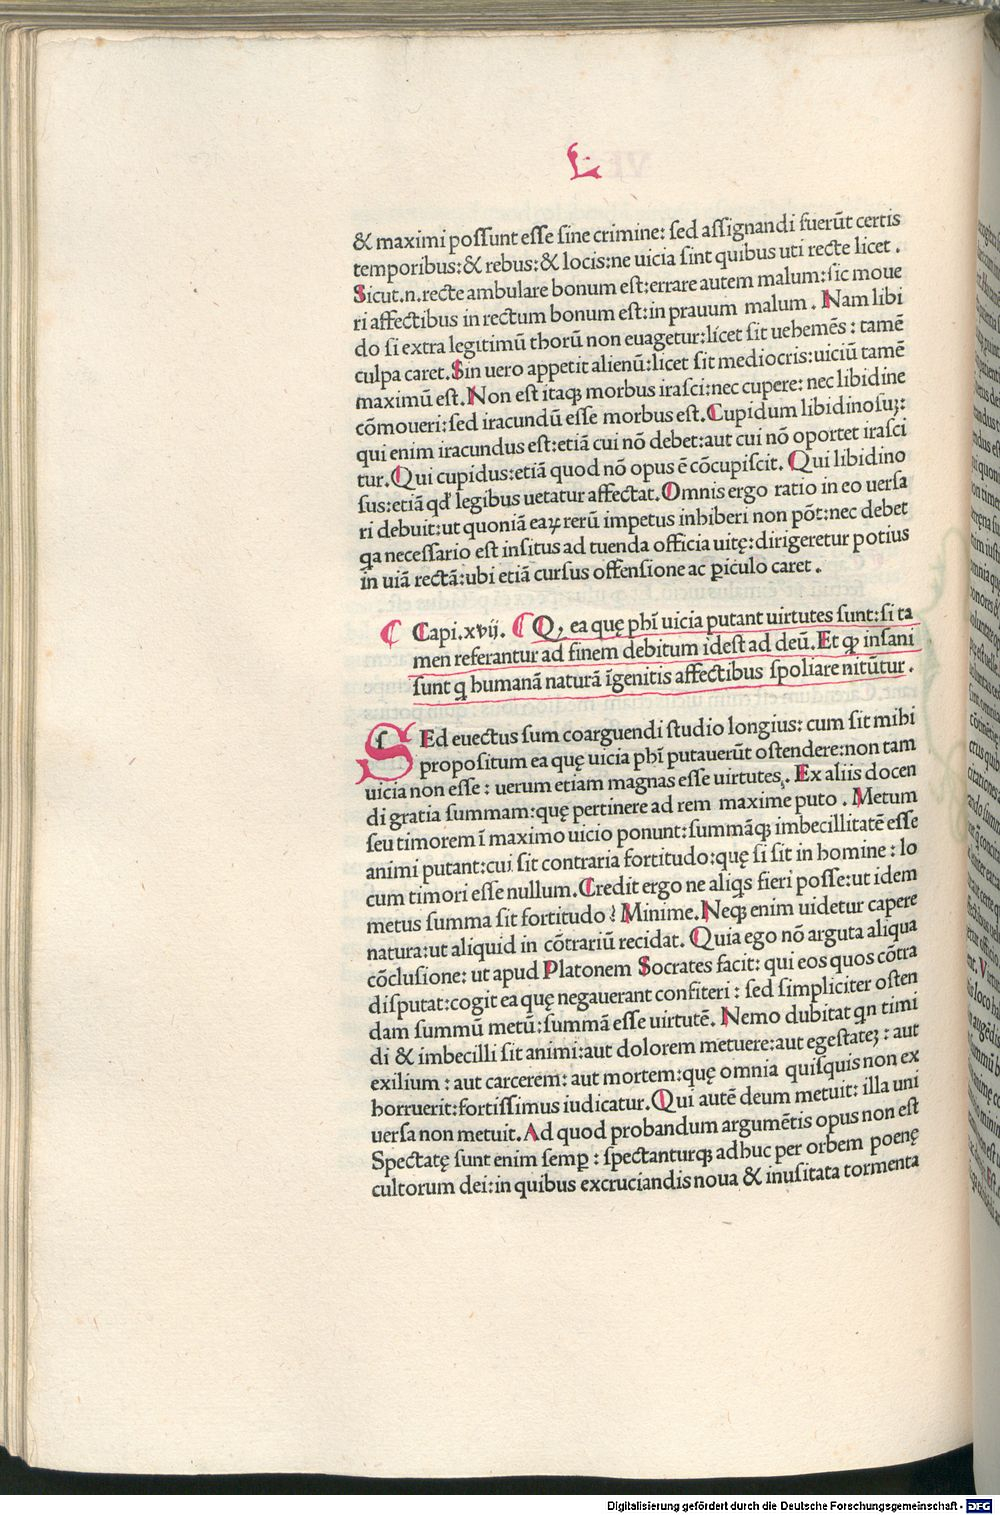 L
& maximi possunt esse sine crimine: sed assignandi fuerūt certis
temporibus:& rebus:& locis:ne uicia sint quibus uti recte licet .
Sicut.n.recte ambulare bonum est:errare autem malum:sic moue
ri affectibus in rectum bonum est:in prauum malum . Nam libi
do si extra legitimū thorū non euagetur:licet sit uehemēs : tamē
culpa caret.Sin uero appetit alienū:licet sit mediocris:uiciū tamē
maximū est.Non est itaqꝫ morbus irasci:nec cupere: nec libidine
cōmoueri:sed iracundū esse morbus est.Cupidum libidinosuꝫ:
qui enim iracundus est:etiā cui nō debet:aut cui nō oportet irasci
tur.Qui cupidus:etiā quod nō opus ē cōcupiscit. Qui libidino
sus:etiā qđ legibus uetatur affectat.Omnis ergo ratio in eo uersa
ri debuit:ut quoniā eaꝝ rerū impetus inhiberi non pōt:nec debet
qa necessario est insitus ad tuenda officia uitę:dirigeretur potius
in uiā rectā:ubi etiā cursus offensione ac ꝑiculo caret .
Capi.xvij. Qꝫ ea quę phi̅ uicia putant uirtutes sunt:si ta
men referantur ad finem debitum idest ad deū.Et ꝙ insani
sunt q humanā naturā īgenitis affectibus spoliare nitūtur .
SEd euectus sum coarguendi studio longius: cum sit mihi
propositum ea quę uicia phi̅ putauerūt ostendere:non tam
uicia non esse : uerum etiam magnas esse uirtutes. Ex aliis docen
di gratia summam:quę pertinere ad rem maxime puto . Metum
seu timorem ī maximo uicio ponunt:summāqꝫ imbecillitatē esse
animi putant:cui sit contraria fortitudo:quę si sit in homine : lo
cum timori esse nullum.Credit ergo ne aliqs fieri posse:ut idem
metus summa sit fortitudo? Minime.Neqꝫ enim uidetur capere
natura:ut aliquid in cōtrariū recidat. Quia ego nō arguta aliqua
cōclusione: ut apud Platonem Socrates facit: qui eos quos cōtra
disputat:cogit ea quę negauerant confiteri : sed simpliciter osten
dam summū metū:summā esse uirtutē. Nemo dubitat qn timi
di & imbecilli sit animi:aut dolorem metuere:aut egestateꝫ : aut
exilium : aut carcerem: aut mortem:quę omnia quisquis non ex
horruerit:fortissimus iudicatur.Qui autē deum metuit: illa uni
uersa non metuit.Ad quod probandum argumētis opus non est
Spectatę sunt enim semꝑ : spectanturqꝫ adhuc per orbem poenę
cultorum dei:in quibus excruciandis noua & inusitata tormenta
Digitalisierung gefördert durch die Deutsche Forschungsgemeinschaft - DFG